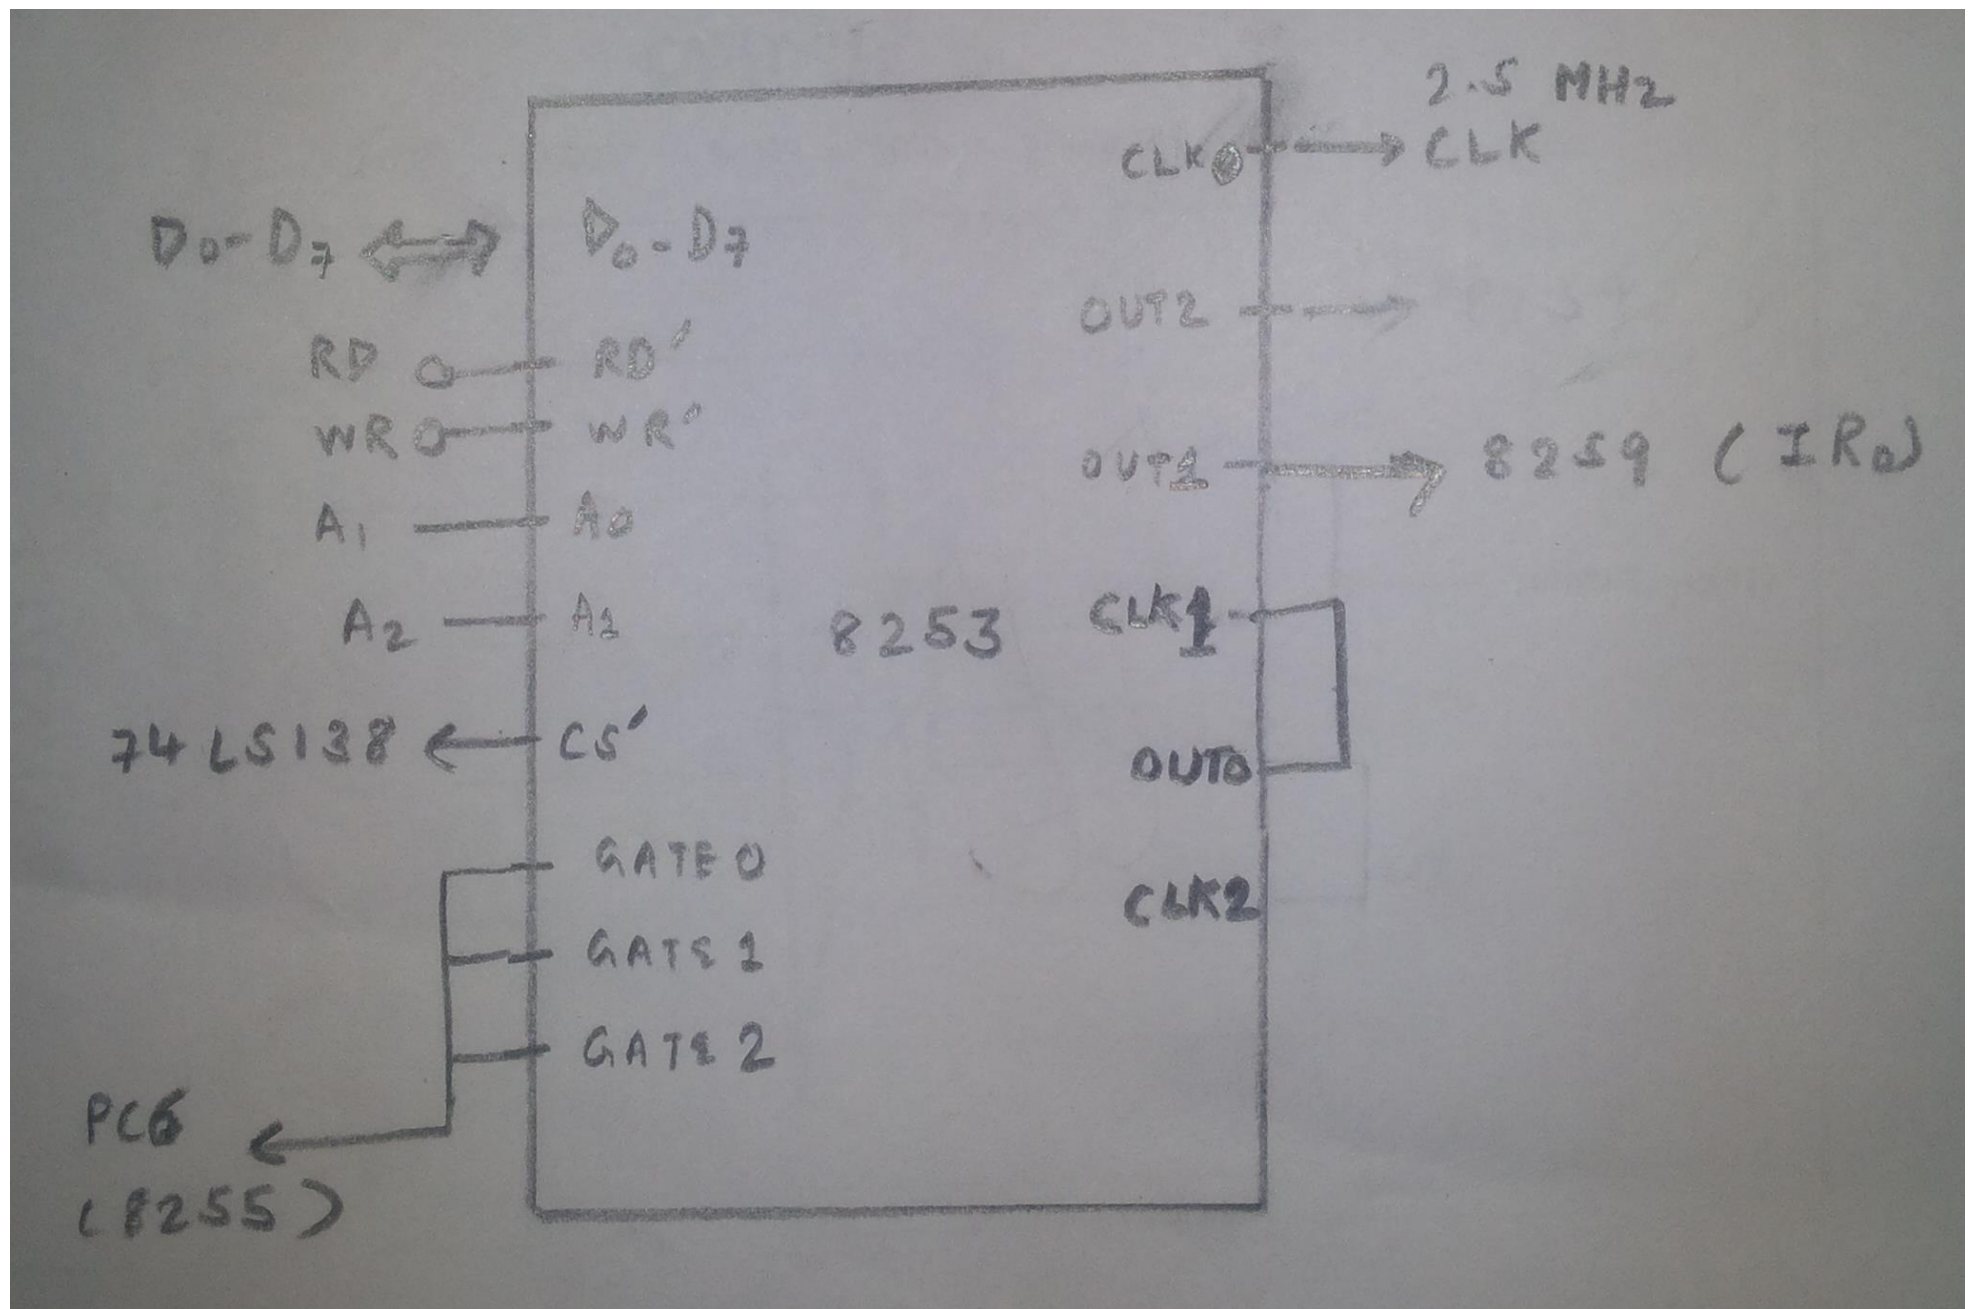 2.5 MHz
CLK0 CLK
D0-D7 D0-D7
OUT2
RD RD'
WR WR'
OUT1 8259 (IR0)
A1 A0
A2 A1
8253
CLK1
74LS138 CS'
OUT0
GATE 0
CLK2
GATE 1
GATE 2
PC6
(8255)